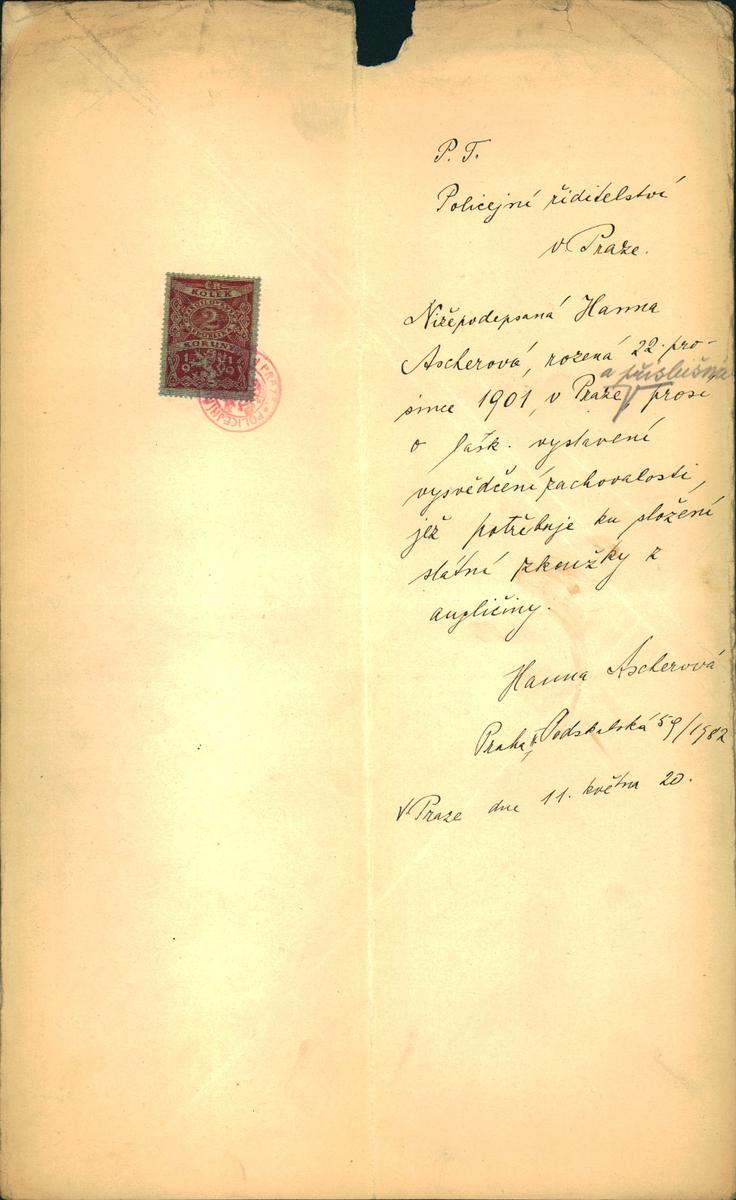 P. T.
Policejní ředitelství
v Praze.
Nížepodepsaná Hanna
Ascherová, rozená 22. pro-
since 1901 v Praze, prosí
a příslušná
o lask. vystavení
vysvědčení zachovalosti,
jež potřebuje ku složení
státní zkoužky z
angličiny.
Hanna Ascherová
Praha Podskalská 59/1982
V Praze dne 11. května 20.
KOLEK
2
KORUNY
1919